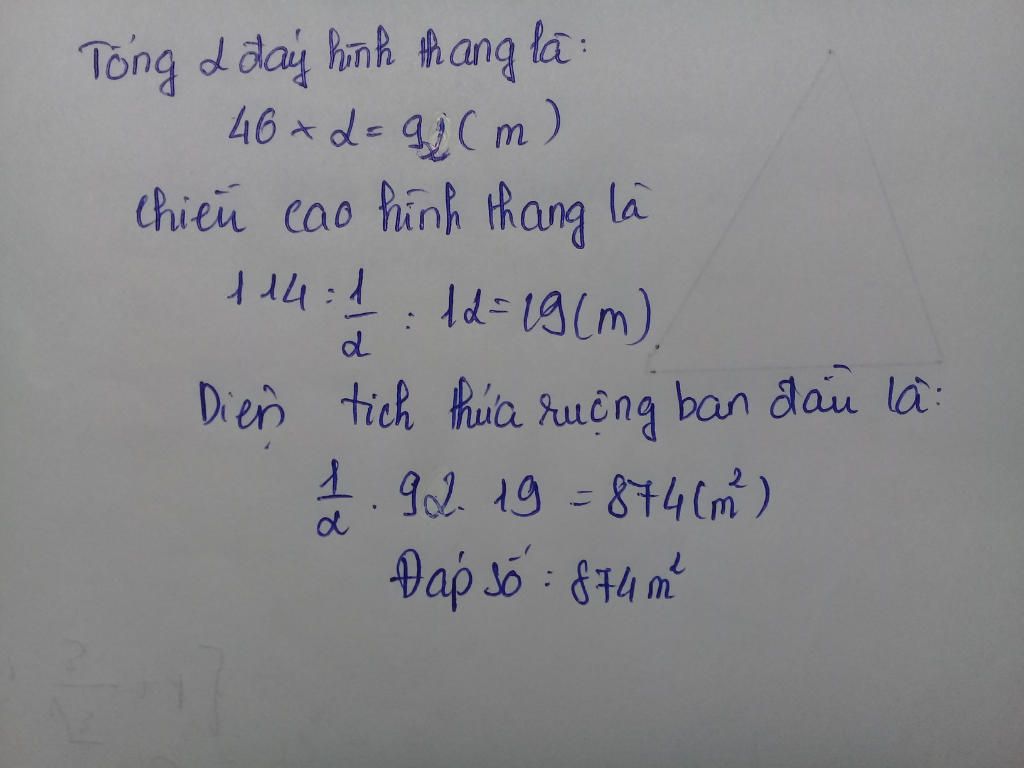 Tổng 2 đáy hình thang là:
46 × 2 = 92 ( m )
Chiều cao hình thang là
114 : 1/2 : 12 = 19 (m)
Diện tích thửa ruộng ban đầu là:
1/2 . 92 . 19 = 874 (m²)
Đáp số : 874 m²